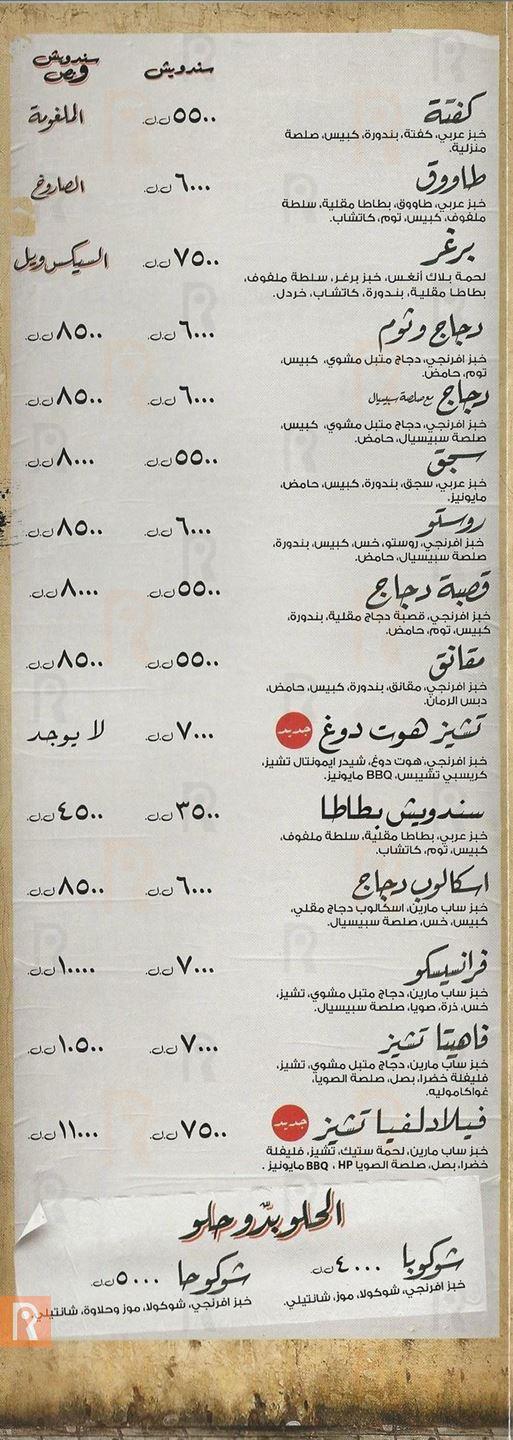 سندويش
سندويش ونص
كفتة ٥٥٠٠ ل.ل. الملغومة
خبز عربي، كفتة، بندورة، كبيس، صلصة
منزلية.
طاووق ٦٠٠٠ ل.ل. الصاروخ
خبز عربي، طاووق، بطاطا مقلية، سلطة
ملفوف، كبيس، توم، كاتشاب.
برغر ٧٥٠٠ ل.ل. السيكس ويل
لحمة بلاك أنغس، خبز برغر، سلطة ملفوف،
بطاطا مقلية، بندورة، كاتشاب، خردل.
دجاج وثوم ٦٠٠٠ ل.ل. ٨٥٠٠ ل.ل.
خبز افرنجي، دجاج متبل مشوي، كبيس،
توم، حامض.
دجاج مع صلصة سبيسيال ٦٠٠٠ ل.ل. ٨٥٠٠ ل.ل.
خبز افرنجي، دجاج متبل مشوي، كبيس،
صلصة سبيسيال، حامض.
سجق ٥٥٠٠ ل.ل. ٨٠٠٠ ل.ل.
خبز عربي، سجق، بندورة، كبيس، حامض،
مايونيز.
روستو ٦٠٠٠ ل.ل. ٨٥٠٠ ل.ل.
خبز افرنجي، روستو، خس، كبيس، بندورة،
صلصة سبيسيال، حامض.
قصبة دجاج ٥٥٠٠ ل.ل. ٨٠٠٠ ل.ل.
خبز افرنجي، قصبة دجاج مقلية، بندورة،
كبيس، توم، حامض.
مقانق ٥٥٠٠ ل.ل. ٨٥٠٠ ل.ل.
خبز افرنجي، مقانق، بندورة، كبيس، حامض،
دبس الرمان.
تشيز هوت دوغ جديد ٧٠٠٠ ل.ل. لا يوجد
خبز افرنجي، هوت دوغ، شيدر ايمونتال تشيز،
كريسبي تشيبس، BBQ مايونيز.
سندويش بطاطا ٣٥٠٠ ل.ل. ٤٥٠٠ ل.ل.
خبز عربي، بطاطا مقلية، سلطة ملفوف،
كبيس، توم، كاتشاب.
اسكالوب دجاج ٦٠٠٠ ل.ل. ٨٥٠٠ ل.ل.
خبز ساب مارين، اسكالوب دجاج مقلي،
كبيس، خس، صلصة سبيسيال.
فرانسيسكو ٧٠٠٠ ل.ل. ١٠٠٠٠ ل.ل.
خبز ساب مارين، دجاج متبل مشوي، تشيز،
خس، ذرة، صويا، صلصة سبيسيال.
فاهيتا تشيز ٧٠٠٠ ل.ل. ١٠٥٠٠ ل.ل.
خبز ساب مارين، دجاج متبل مشوي، تشيز،
فليفلة خضرا، بصل، صلصة الصويا،
غواكاموليه.
فيلادلفيا تشيز جديد ٧٥٠٠ ل.ل. ١١٠٠٠ ل.ل.
خبز ساب مارين، لحمة ستيك، تشيز، فليفلة
خضرا، بصل، صلصة الصويا HP ، BBQ مايونيز .
الحلو بدّو حلو
شوكوبا ٤٠٠٠ ل.ل.
خبز افرنجي، شوكولا، موز، شانتيلي.
شوكوحا ٥٠٠٠ ل.ل.
خبز افرنجي، شوكولا، موز وحلاوة، شانتيلي.
R